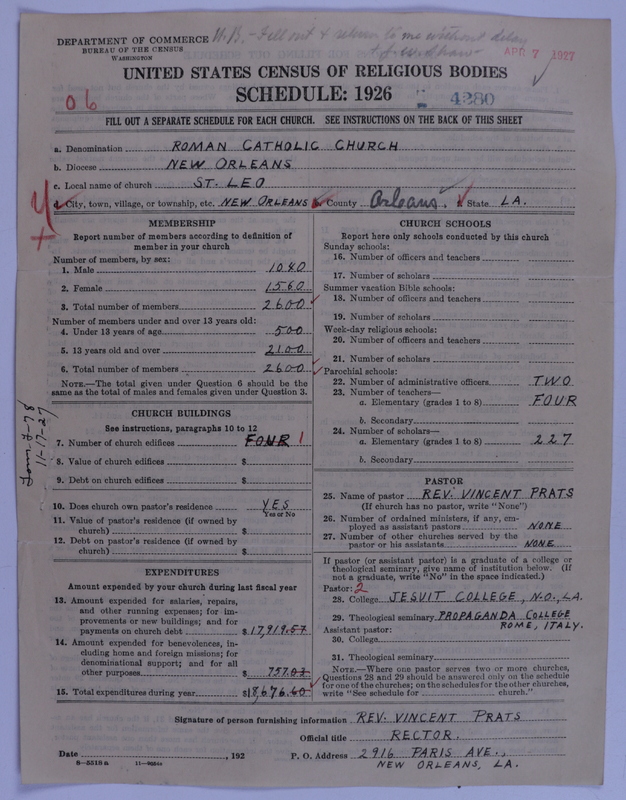 N.B. - Fill out & return to me without delay
DEPARTMENT OF COMMERCE
BUREAU OF THE CENSUS
WASHINGTON
APR 7 1927
UNITED STATES CENSUS OF RELIGIOUS BODIES
SCHEDULE: 1926
06
4280
FILL OUT A SEPARATE SCHEDULE FOR EACH CHURCH. SEE INSTRUCTIONS ON THE BACK OF THIS SHEET
a. Denomination ROMAN CATHOLIC CHURCH
b. Diocese NEW ORLEANS
c. Local name of church ST. LEO
d. City, town, village, or township, etc. NEW ORLEANS County Orleans, State LA.
MEMBERSHIP
Report number of members according to definition of
member in your church
Number of members, by sex:
1. Male 1040
2. Female 1560
3. Total number of members 2600
Number of members under and over 13 years old:
4. Under 13 years of age 500
5. 13 years old and over 2100
6. Total number of members 2600
NOTE.—The total given under Question 6 should be the
same as the total of males and females given under Question 3.
CHURCH BUILDINGS
See instructions, paragraphs 10 to 12
7. Number of church edifices FOUR 1
8. Value of church edifices $
9. Debt on church edifices $
10. Does church own pastor's residence YES
Yes or No
11. Value of pastor's residence (if owned by
church) $
12. Debt on pastor's residence (if owned by
church) $
11-17-27
EXPENDITURES
Amount expended by your church during last fiscal year
13. Amount expended for salaries, repairs,
and other running expenses; for im-
provements or new buildings; and for
payments on church debt $17,919.57
14. Amount expended for benevolences, in-
cluding home and foreign missions; for
denominational support; and for all
other purposes $ 757.03
15. Total expenditures during year $18,676.60
CHURCH SCHOOLS
Report here only schools conducted by this church
Sunday schools:
16. Number of officers and teachers
17. Number of scholars
Summer vacation Bible schools:
18. Number of officers and teachers
19. Number of scholars
Week-day religious schools:
20. Number of officers and teachers
21. Number of scholars
Parochial schools:
22. Number of administrative officers TWO
23. Number of teachers—
a. Elementary (grades 1 to 8) FOUR
b. Secondary
24. Number of scholars—
a. Elementary (grades 1 to 8) 227
b. Secondary
PASTOR
25. Name of pastor REV. VINCENT PRATS
(If church has no pastor, write "None")
26. Number of ordained ministers, if any, em-
ployed as assistant pastors NONE
27. Number of other churches served by the
pastor or his assistants NONE
If pastor (or assistant pastor) is a graduate of a college or
theological seminary, give name of institution below. (If
not a graduate, write "No" in the space indicated.)
Pastor: 2
28. College JESUIT COLLEGE, N.O., LA.
29. Theological seminary PROPAGANDA COLLEGE
ROME, ITALY.
Assistant pastor:
30. College
31. Theological seminary
NOTE.—Where one pastor serves two or more churches,
Questions 28 and 29 should be answered only on the schedule
for one of the churches; on the schedules for the other churches,
write "See schedule for church."
Signature of person furnishing information REV. VINCENT PRATS
Official title RECTOR.
Date , 192 P. O. Address 2916 PARIS AVE.,
8—5518 a
NEW ORLEANS, LA.